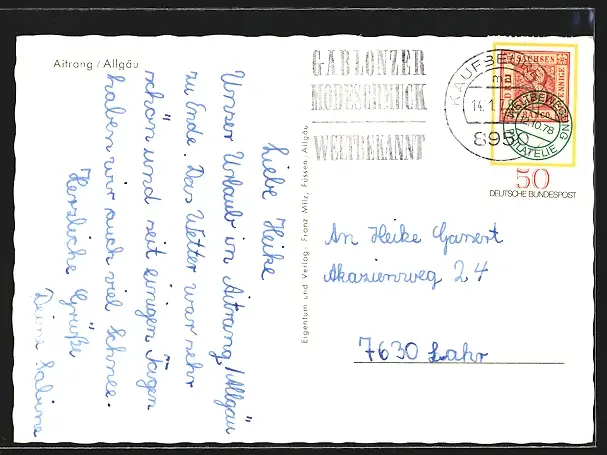 Aitrang / Allgäu
Liebe Heike
Unser Urlaub in Aitrang /Allgäu
zu Ende. Das Wetter war sehr
schön und seit einigen Tagen
haben wir auch viel Schnee.
Herzliche Grüße
Deine Sabine
Eigentum und Verlag: Franz Milz, Füssen - Allgäu
GABLONZER
MODESCHMUCK
WELTBEKANNT
KAUFBEUREN
ma
14.1.7
8950
SACHSEN
DREI PFENNIGE
FRANCO
WELTBEWEGUNG
12.10.78
PHILATELIE
50
DEUTSCHE BUNDESPOST
An Heike Gansert
Akazienweg 24
7630 Lahr